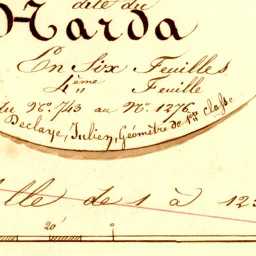 dite du
Harda
En Six Feuilles
4ème Feuille
du Nº. 743 au Nº. 1276
Declaye, Julien, Géomètre de 1re classe
lle de 1 à 125
20'